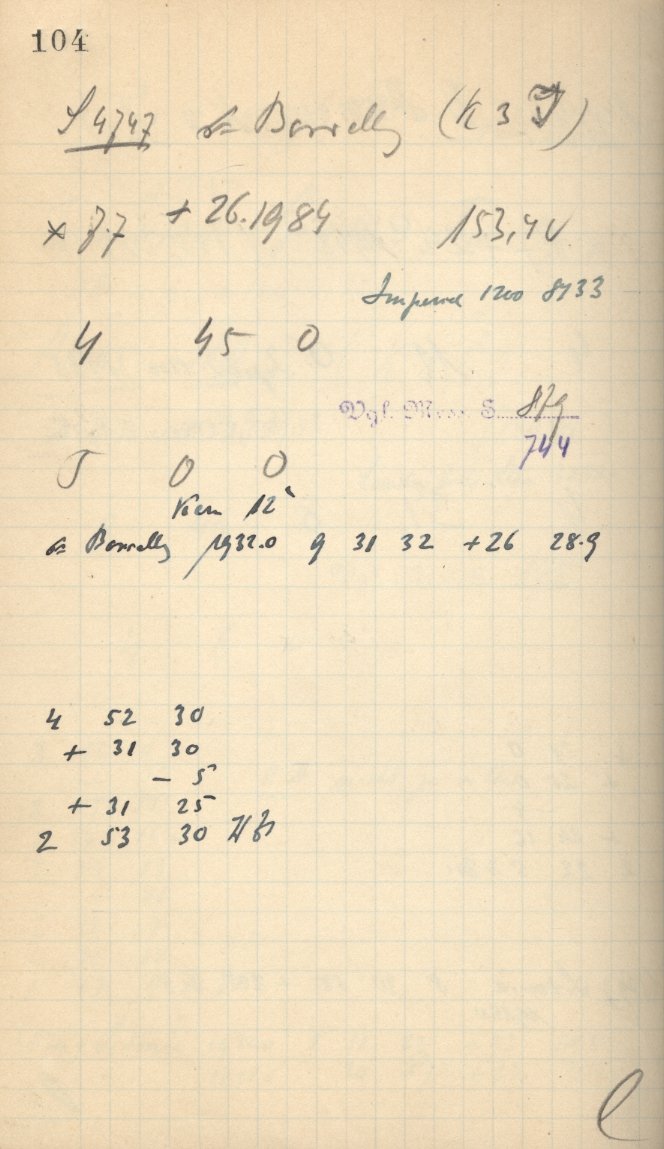 104
S 4747 Borrelly (K 3
× 8.7 + 26.1984 153,4 v
Imperial 1200 8733
4 45 0
Vgl. Mess S. 879
744
5 0 0
Kern 12
Borrelly 1932.0 9 31 32 +26 28.9
4 52 30
+ 31 30
- 5
+ 31 25
2 53 30